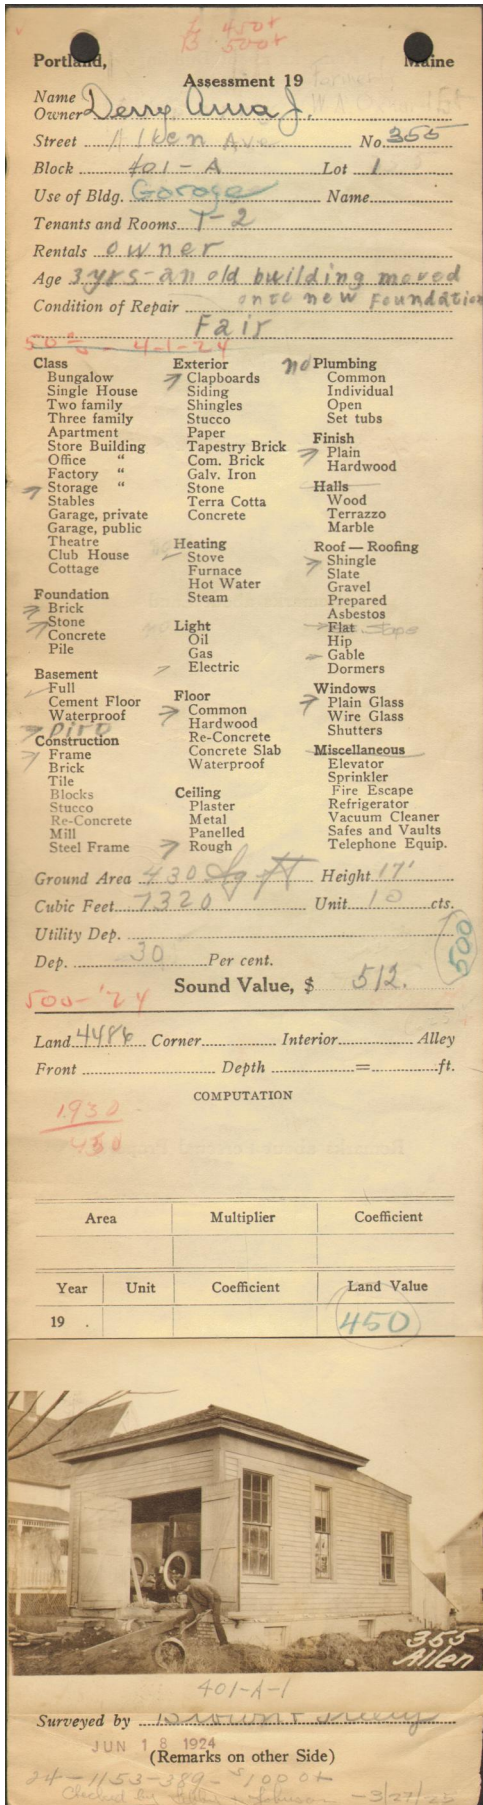 L 450+
B 500+
Portland, Maine
Assessment 19
Name
Owner Derry, Anna J.
Street Allen Ave No. 355
Block 401-A Lot 1
Use of Bldg. Garage Name
Tenants and Rooms T-2
Rentals owner
Age 3 yrs - an old building moved
onto new Foundation
Condition of Repair
Fair
4-1-24
Class
Bungalow
Single House
Two family
Three family
Apartment
Store Building
Office "
Factory "
Storage "
Stables
Garage, private
Garage, public
Theatre
Club House
Cottage
Foundation
Brick
Stone
Concrete
Pile
Basement
Full
Cement Floor
Waterproof
Dirt
Construction
Frame
Brick
Tile
Blocks
Stucco
Re-Concrete
Mill
Steel Frame
Exterior
Clapboards
Siding
Shingles
Stucco
Paper
Tapestry Brick
Com. Brick
Galv. Iron
Stone
Terra Cotta
Concrete
Heating
Stove
Furnace
Hot Water
Steam
Light
Oil
Gas
Electric
Floor
Common
Hardwood
Re-Concrete
Concrete Slab
Waterproof
Ceiling
Plaster
Metal
Panelled
Rough
no Plumbing
Common
Individual
Open
Set tubs
Finish
Plain
Hardwood
Halls
Wood
Terrazzo
Marble
Roof — Roofing
Shingle
Slate
Gravel
Prepared
Asbestos
Flat
Hip
Gable
Dormers
Windows
Plain Glass
Wire Glass
Shutters
Miscellaneous
Elevator
Sprinkler
Fire Escape
Refrigerator
Vacuum Cleaner
Safes and Vaults
Telephone Equip.
Ground Area 430 Sq ft Height 17'
Cubic Feet 7320 Unit 10 cts.
Utility Dep.
500
Dep. 30 Per cent.
Sound Value, $ 512.
500-'24
Land 4486 Corner Interior Alley
Front Depth = ft.
COMPUTATION
1930
450
Area Multiplier Coefficient
Year Unit Coefficient Land Value
19 . 450
355
Allen
401-A-1
Surveyed by Brown +
JUN 18 1924
(Remarks on other Side)
24-1153-389-$1000+
Checked by Johnson -3/27/25